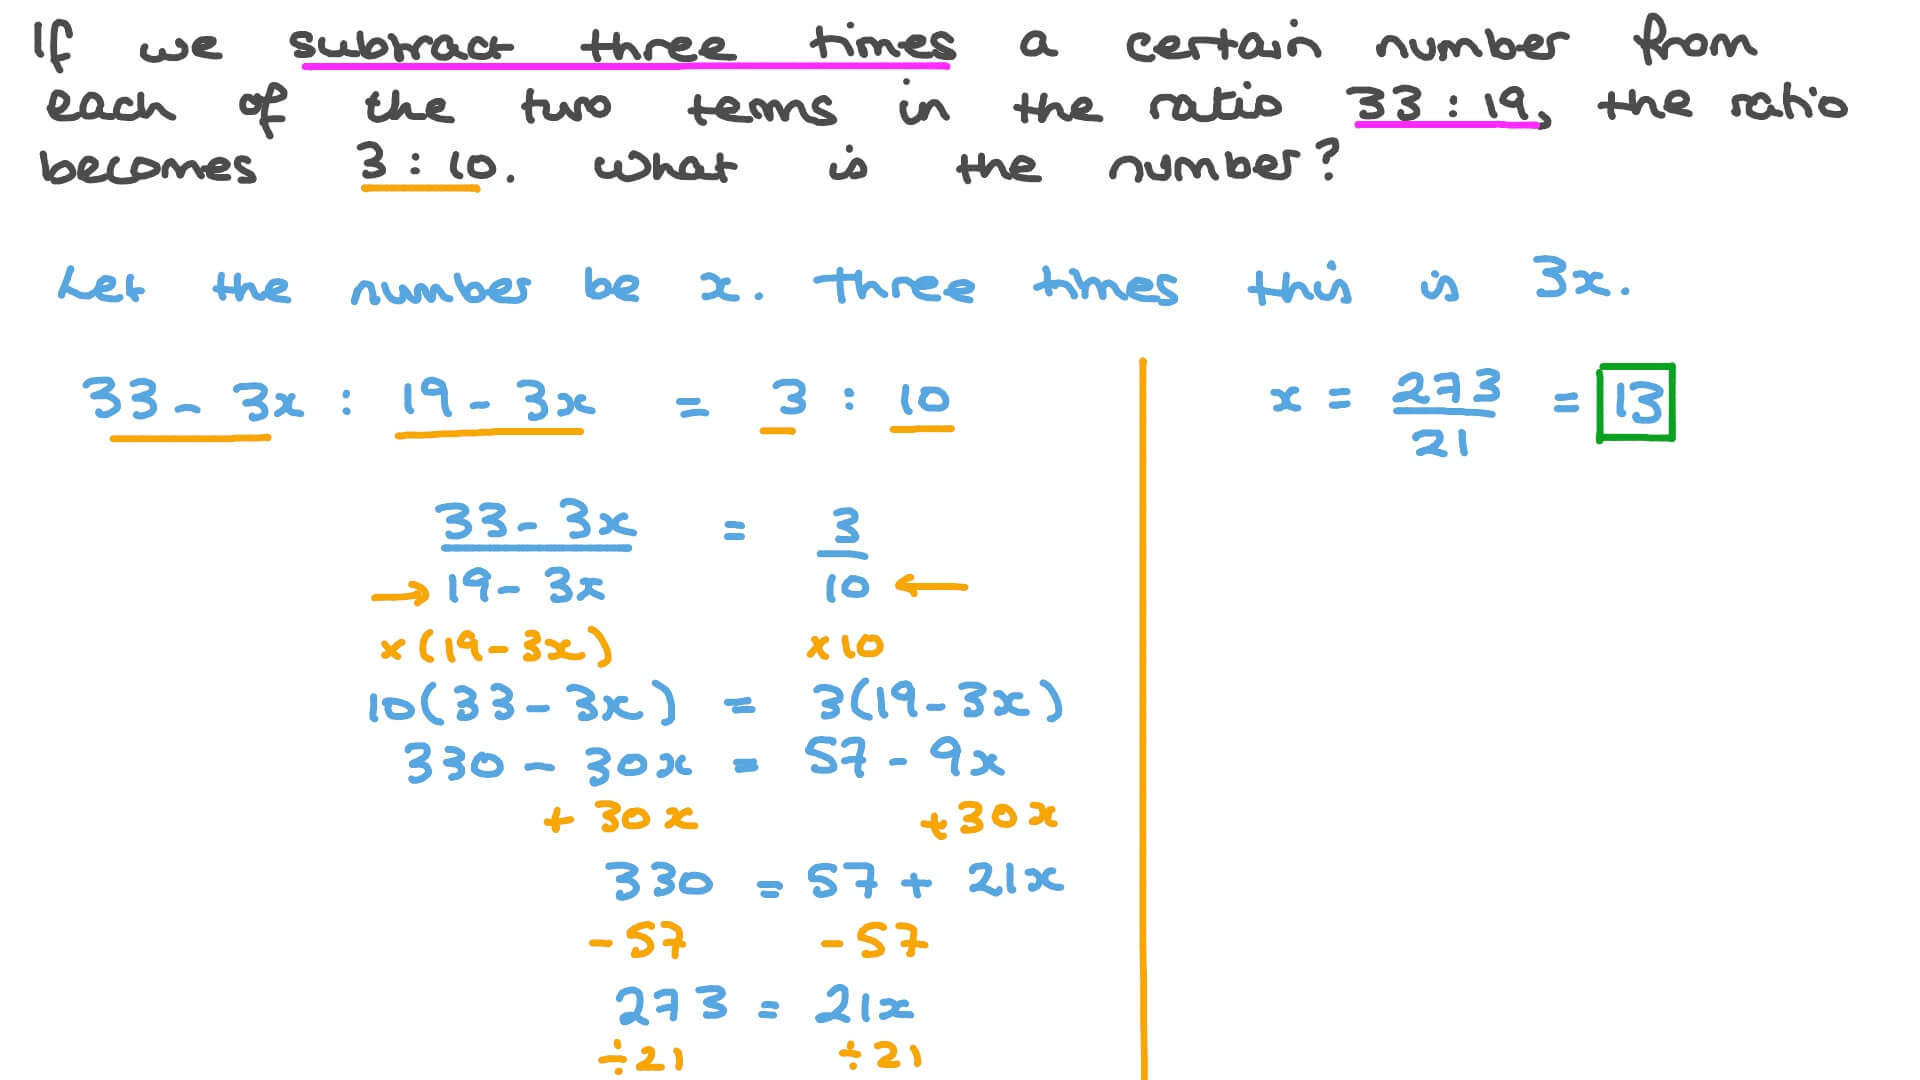 If we subtract three times a certain number from
each of the two terms in the ratio 33 : 19, the ratio
becomes 3 : 10. What is the number?
Let the number be x. Three times this is 3x.
33 - 3x : 19 - 3x = 3 : 10
33 - 3x = 3
→ 19 - 3x 10 ←
×(19 - 3x) ×10
10(33 - 3x) = 3(19 - 3x)
330 - 30x = 57 - 9x
+ 30x +30x
330 = 57 + 21x
- 57 - 57
273 = 21x
÷21 ÷21
x = 273 = 13
21